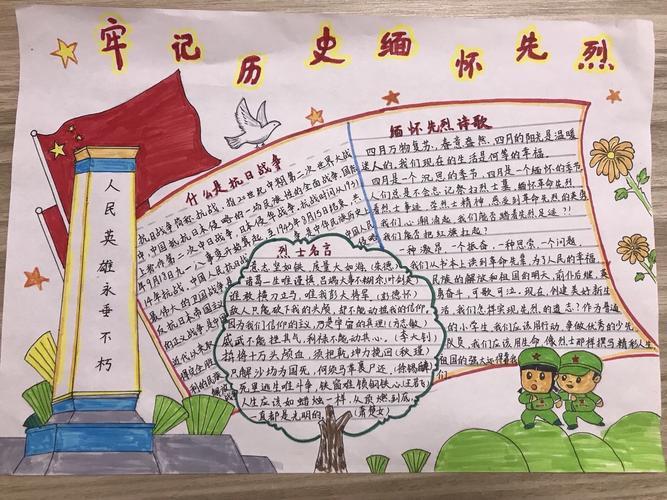 牢记历史缅怀先烈
人民英雄永垂不朽
什么是抗日战争
抗日战争简称抗战,指20世纪中期第二次世界大战
中,中国抵抗日本侵略的一场民族性的全面战争,国际
上称作第二次中日战争、日本侵华战争。抗战时间从1931年
9月18日九一八事变开始算起,至1945年8月15日结束,共
14年抗战。中国人民抗
烈士名言
意志坚如铁,度量大如海(朱德)
诸葛一生唯谨慎,吕端大事不糊涂(叶剑英)
谁敢横刀立马,唯我彭大将军(彭德怀)
敌人只能砍下我的头颅,却不能动摇我的信仰,
因为我们信仰的主义,乃是宇宙的真理(方志敏)
威武不能挫其气,利禄不能动其心。(李大钊)
拼将十万头颅血,须把乾坤力挽回(秋瑾)
只解沙场为国死,何须马革裹尸还(徐锡麟)
死里逃生唯斗争,铁窗难锁钢铁心(王若飞)
人生应该如蜡烛一样,从顶燃到底,
一直都是光明的(萧楚女)
缅怀先烈诗歌
四月万物复苏、春意盎然,四月的阳光是温暖
迷人的,我们现在的生活是何等的幸福。
四月是一个沉思的季节,四月是一个缅怀的季节,
人们总是不会忘记祭扫烈士墓,缅怀革命先烈,
看烈士事迹,学烈士精神,感受到革命先烈的
我们心潮涌起,我们能否踏着先烈足迹?!
我们能否把红旗扛起?
一种激昂,一个振奋,一种思索,一个问题,
我们从书本上读到革命先辈,为了人民的幸福,
民族的解放和祖国的明天,前仆后继,英
勇奋斗,可歌可泣,现在,创建美好新生
活,我们怎样实现先烈的遗志?作为普通
的小学生,我们应该用行动,争做优秀的少先
队员,我们应该用生命,像烈士那样撰写精彩人生